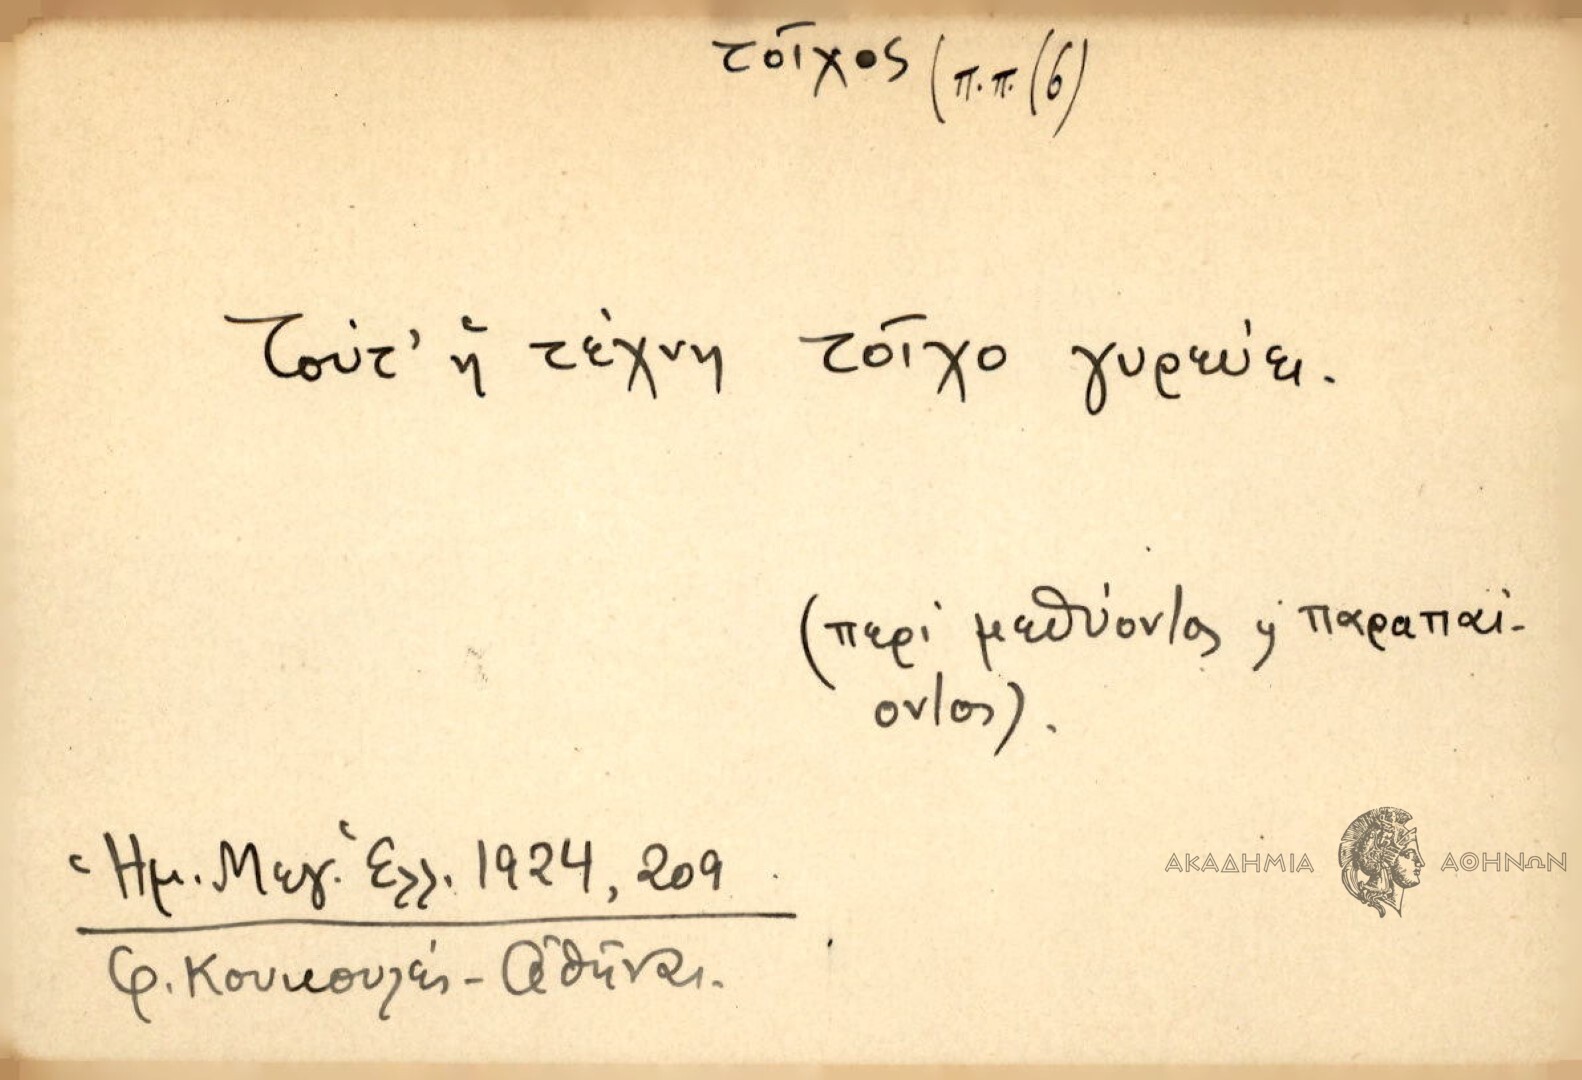 τοῖχος (π.π. (6)
Τούτ' ἡ τέχνη τοῖχο γυρεύει.
(περὶ μεθύοντος ἢ παραπαί-
οντος).
Ἡμ. Μεγ. Ἑλλ. 1924, 209
Φ. Κουκουλές - Ἀθῆναι.
ΑΚΑΔΗΜΙΑ ΑΘΗΝΩΝ